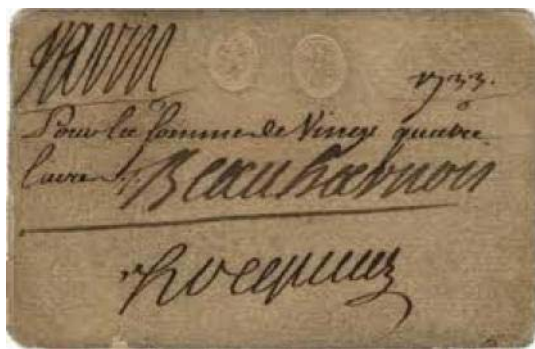 Varin 1733.
Pour la Somme de Vingt quatre
livres. Beauharnois
Hocquart